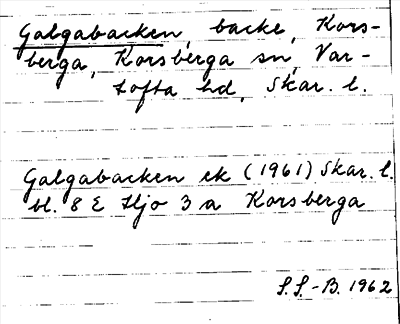 Galgabacken, backe, Kors-
berga, Korsberga sn, Var-
tofta hd, Skar. l.
Galgabacken ek (1961) Skar. l.
bl. 8 E Hjo 3 a Korsberga
S.S.-B. 1962